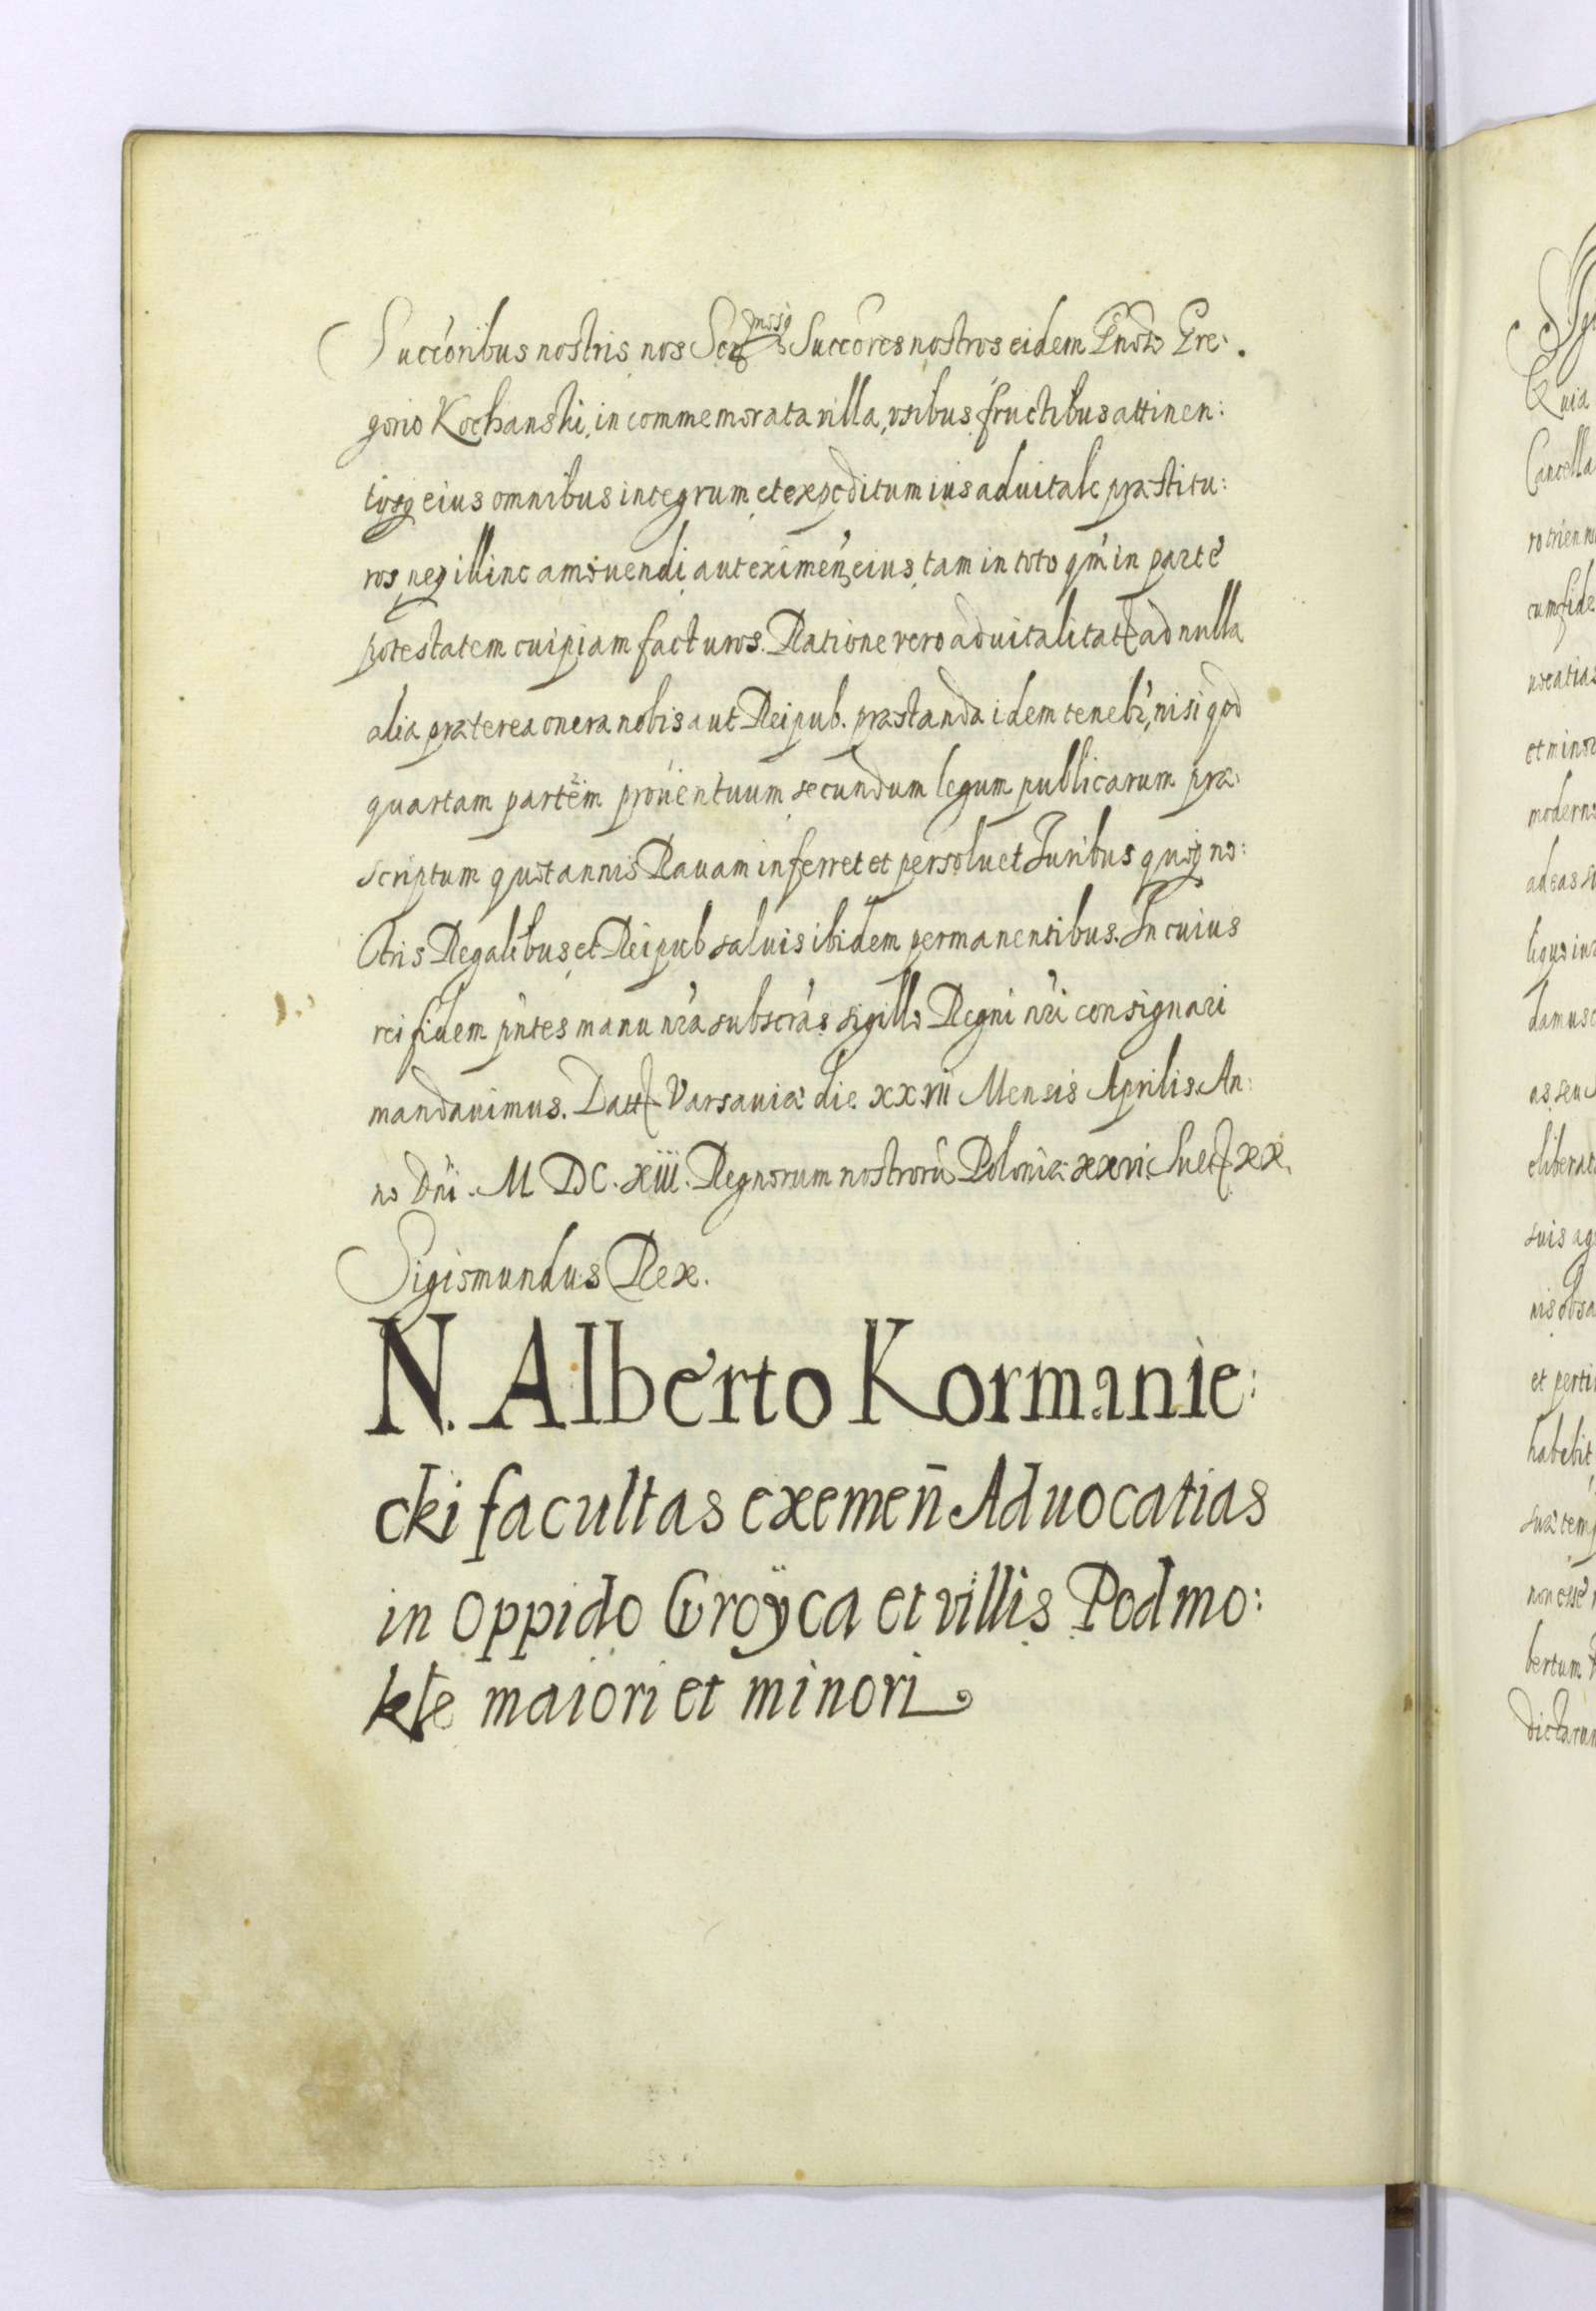 Succoribus nostris nos Ser mosq Succores nostros eidem Gnoso Gre:
gorio Kochanski, in commemorata villa, usibus fructibus attinen:
tiisq eius omnibus integrum et expeditum ius aduitale præstitu:
ros neq illinc amouendi aut eximen eius tam in toto qm in parte
potestatem cuipiam facturos. Ratione vero aduitalitat ad nulla
alia præterea onera nobis aut Reipub. præstanda idem tenebr, nisi qod
quartam partem prouentuum secundum legum publicarum præ:
scriptum quotannis Rauam inferret et persoluet Juribus quoq no:
stris Regalibus et Reipub saluis ibidem permanentibus. In cuius
rei fidem pntes manu nra subscras sigillo Regni nri consignari
mandauimus. Datt Varsauiæ die xxvii Mensis Aprilis. An:
no Dni. M DC. xiii. Regnorum nostroru Poloniæ xxvi Suet xx.
Sigismundus Rex.
N. Alberto Kormanie:
cki facultas exemen Aduocatias
in Oppido Groÿca et villis Podmo:
kłe maiori et minori
Quia
Cancella
ro trienn
cum fide
uocatias
et minor
moderno
ad eas
damus
as seu
eliberat
suis ag
et perti
habebit
non esse
bertum
dictarum